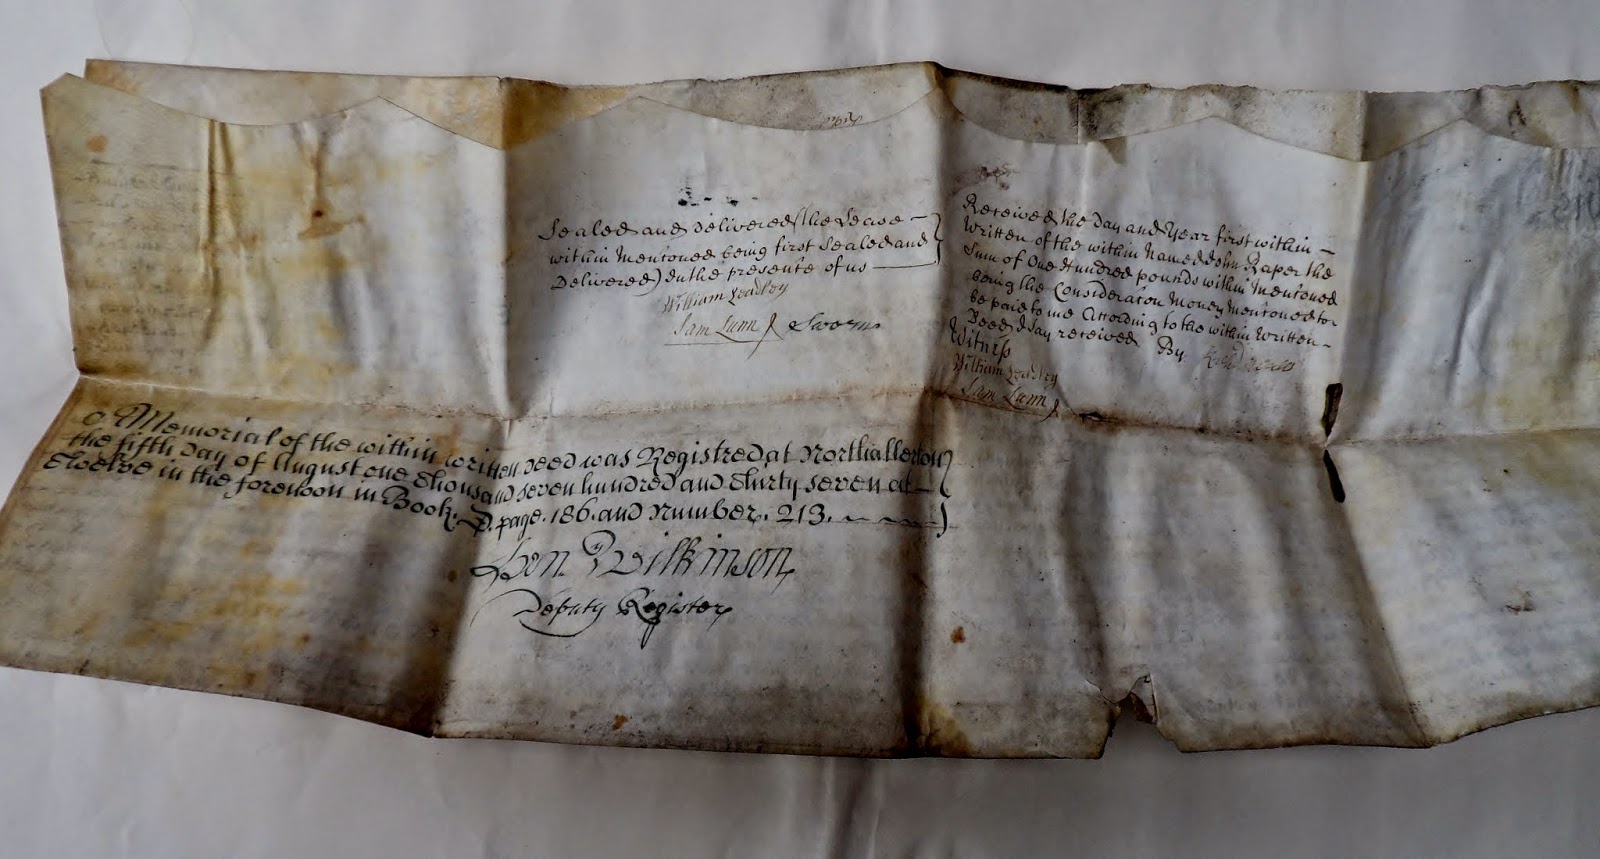 Sealed and Delivered (the Lease
within Mentoned being first Sealed and
Delivered) In the presente of us
William Leadley
Sam Lunn Sworn
Received the Day and Year first within
Written of the within Named John Raper the
Sum of One Hundred pounds within Mentoned
being the Consideraton Money Mentoned to
be paid to me Attording to the within Written
Deed I say received By
Witness
William Leadley
Sam Lunn
A Memorial of the within written Deed was Registred at Northallerton
the fifth Day of August one Thousand seven hundred and Thirty seven at
Twelve in the forenoon in Book. D. page. 186. and Number. 213.
Wilkinson
Deputy Register